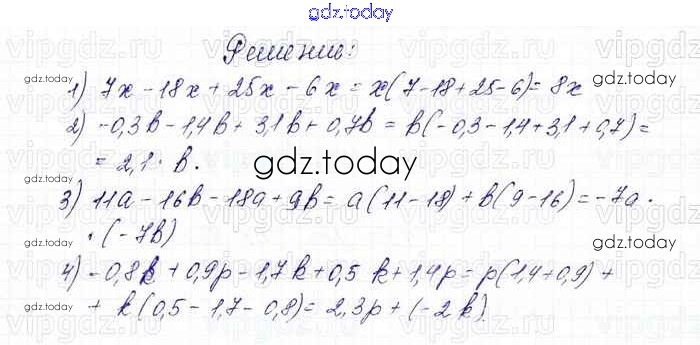 gdz.today
Решение:
1) 7x - 18x + 25x - 6x = x(7-18+25-6) = 8x
2) -0,3b - 1,4b + 3,1b + 0,7b = b(-0,3-1,4+3,1+0,7) =
= 2,1 · b.
3) 11a - 16b - 18a + 9b = a(11-18) + b(9-16) = -7a ·
· (-7b)
4) -0,8k + 0,9p - 1,7k + 0,5k + 1,4p = p(1,4+0,9) +
+ k(0,5 - 1,7 - 0,8) = 2,3p + (-2k)
gdz.today
gdz.today
gdz.today
gdz.today
gdz.today
gdz.today
gdz.today
vipgdz.ru
vipgdz.ru
vipgdz.ru
vipgdz.ru